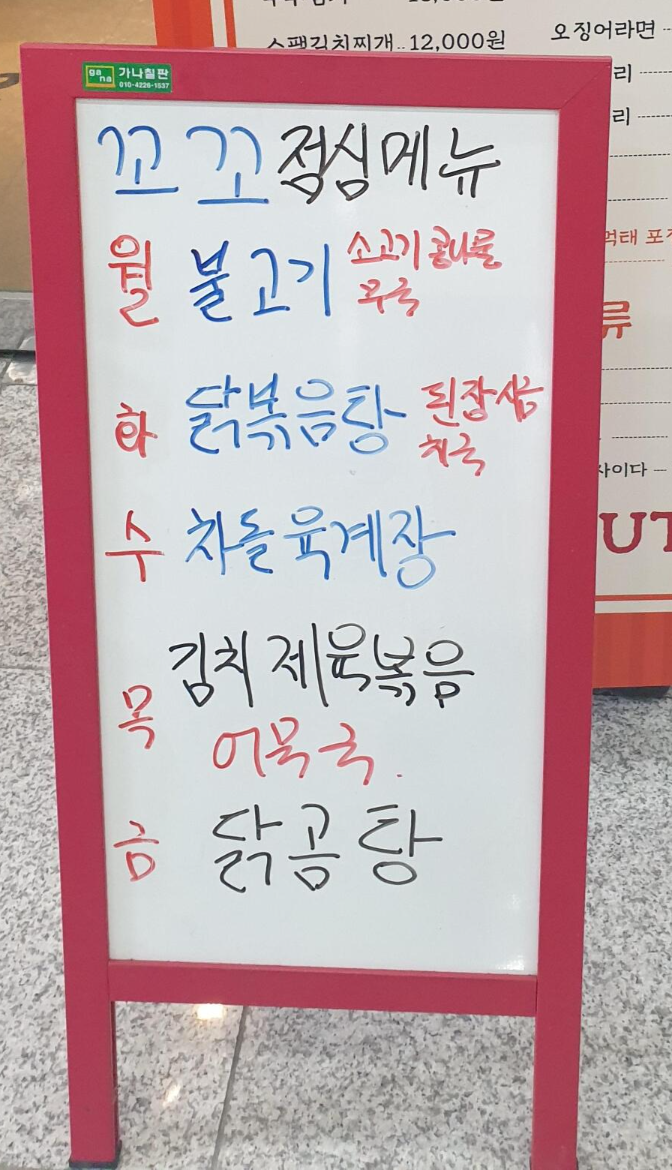 스팸김치찌개..12,000원
오징어라면
리
리
ga na 가나칠판
010-4226-1537
꼬꼬 점심메뉴
월 불고기 소고기 콩나물
무국
화 닭볶음탕 된장시금
치국
수 차돌육계장
목 김치제육볶음
어묵국.
금 닭곰탕
먹태 포
류
사이다
UT